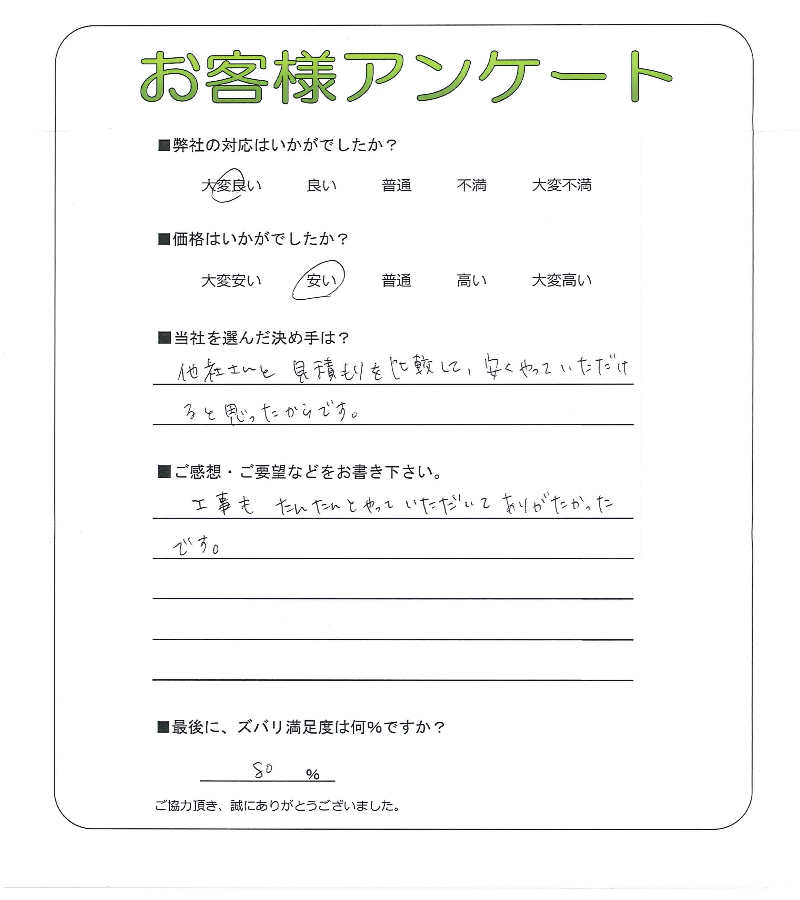 お客様アンケート
■弊社の対応はいかがでしたか？
大変良い 良い 普通 不満 大変不満
■価格はいかがでしたか？
大変安い 安い 普通 高い 大変高い
■当社を選んだ決め手は？
他社さんと 見積もりを比較して、安くやっていただけ
ると思ったからです。
■ご感想・ご要望などをお書き下さい。
工事も たんたんとやっていただいて ありがたかった
です。
■最後に、ズバリ満足度は何％ですか？
80 ％
ご協力頂き、誠にありがとうございました。